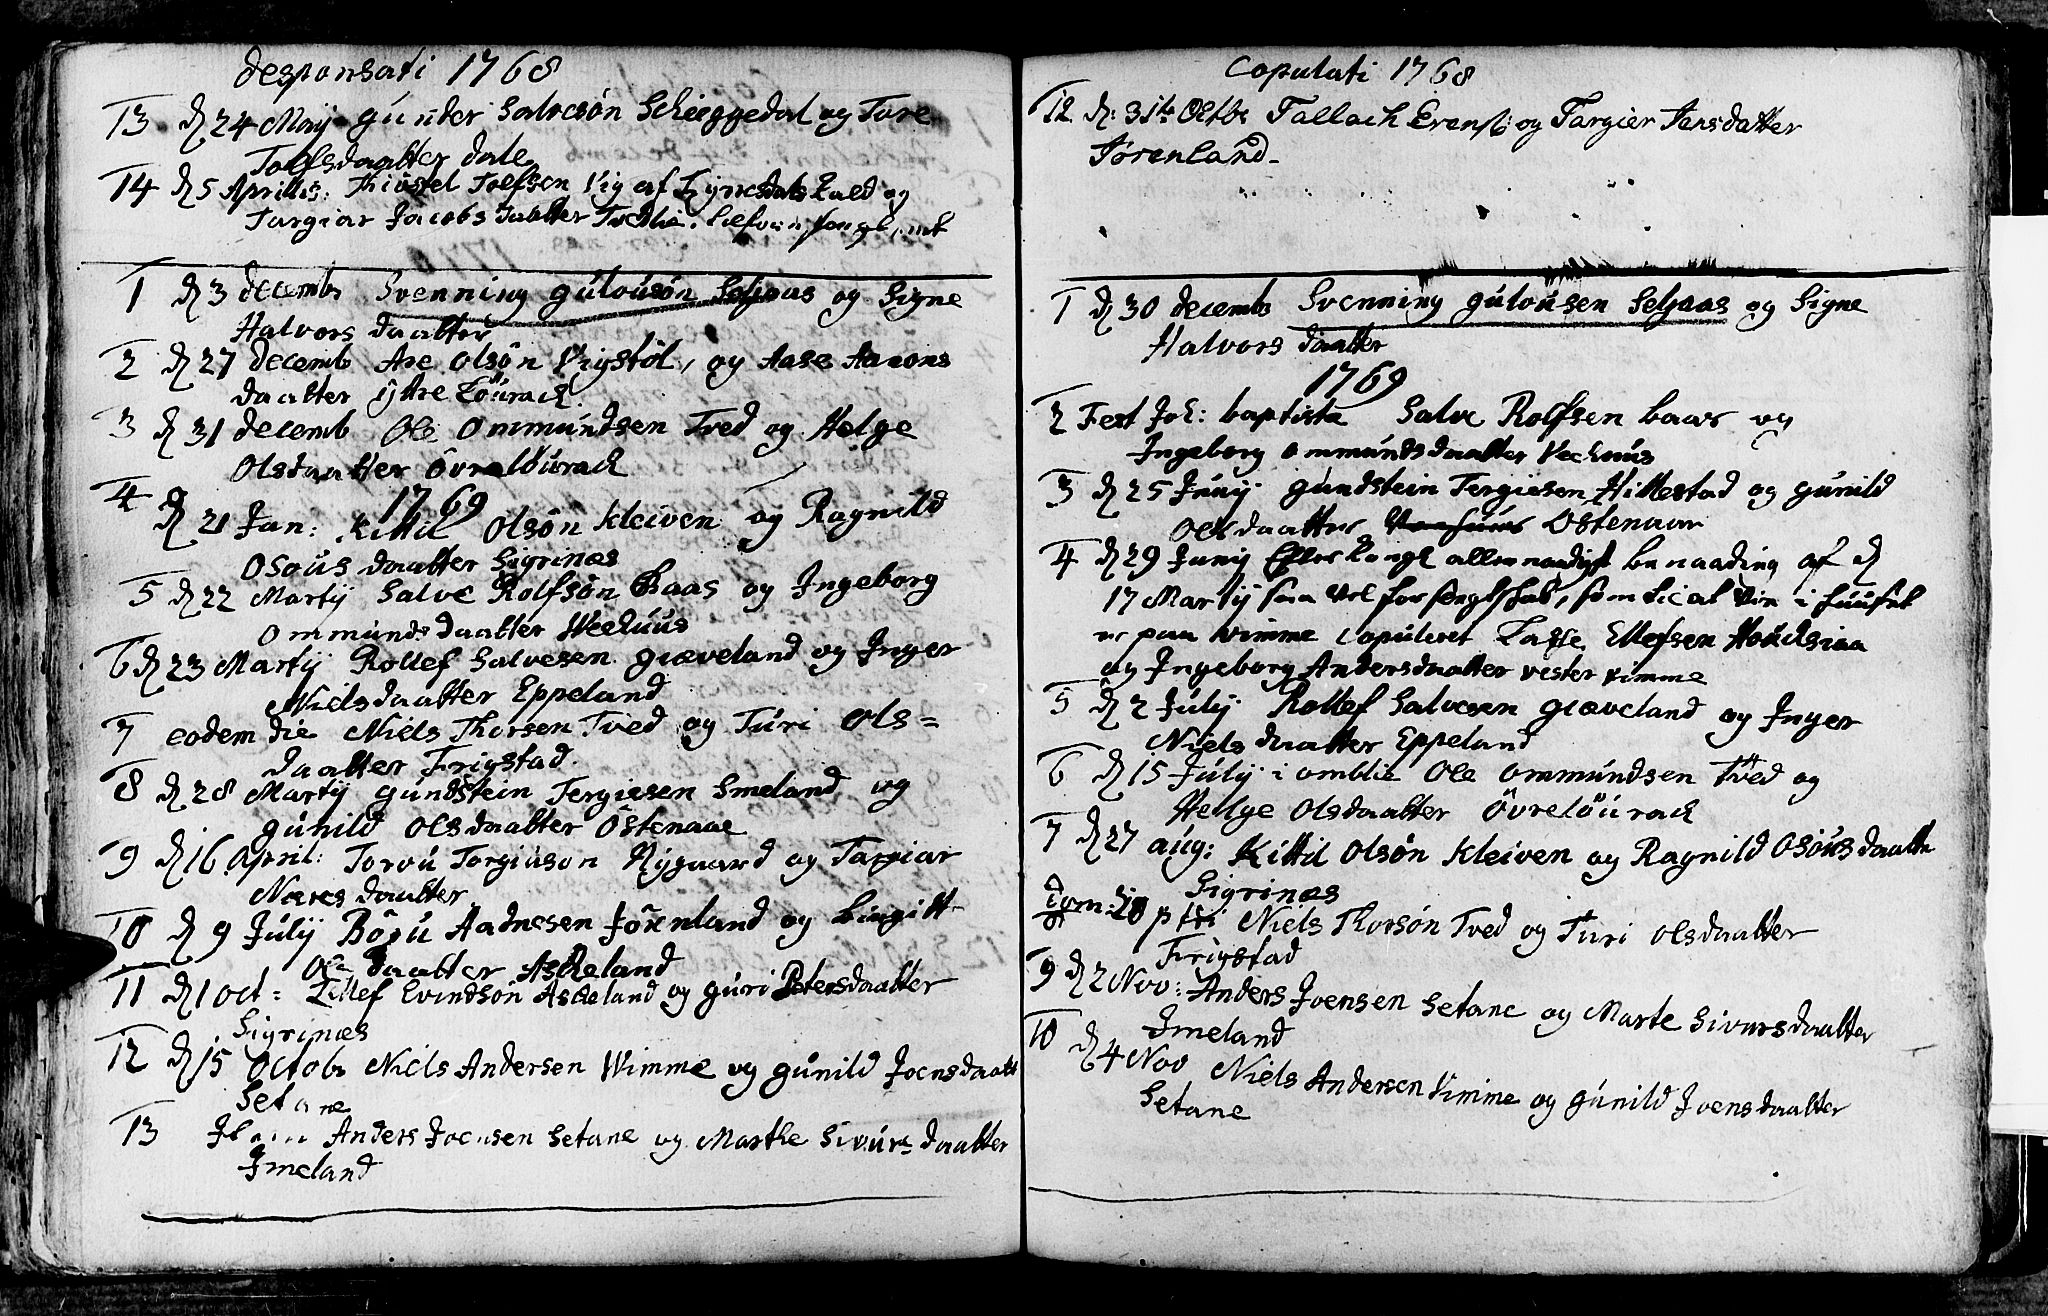 Desponsati 1768
13 d 24 Maij Gunder Salvesøn Scheeggedal og Tore
Tolfsdaatter Dale
14 d 5 Aprillis: Thiostel Tolfsen Vig af Lyngdals Præld og
Targiar Jacobs Daatter Tvedlie.
1 d 3 Decembr Svenning Gulousøn Seljaas og Signe
Halvors Daatter
2 d 27 Decemb Are Olsøn Vigstøl, og Aase Aarons
Daatter ijtre Løurack
3 d 31 Decemb Ole Ommundsen Tved og Helge
Olsdaatter Øvreløurack
1769
4 d 21 Jan: Kittil Olsøn Kleiven og Ragnild
Osous Daatter Sigrinæs
5 d 22 Martij Salve Rolfsøn Baas og Ingeborg
Ommunds Daatter Veehuus
6 d 23 Martij Rollef Salvesen Græveland og Inger
Nielsdaatter Eppeland
7 eodem die Niels Thorsen Tved og Turi Ols=
Daatter Frigstad
8 d 28 Martij Gundstein Tergiesen Smeland og
Gunild Olsdaatter Østenaae
9 d 16 April: Torvu Torgiuson Nygaard og Targiar
Næres Daatter
10 d 9 Julij Børu Aadnesen Jørenland og Birgitt
Ole Daatter Askeland
11 d 1 Oct= Ellef Evindsøn Askeland og Guri Petersdaatter
Sigrinæs
12 d 15 Octobr Niels Andersen Wimme og Gunild Joensdaatt
Setane
13 Anders Joensen Setane og Marthe Sivurs Daatter
Imeland
Copulati 1768
12 d: 31te Octbr Tallach Evens: og Targier Jensdatter
Jørenland
1 d 30 Decemb Svenning Gulousen Seljaas og Signe
Halvors Daatter
1769
2 Fest Joh: baptista Salve Rolfsen Baas og
Ingeborg Ommundsdaatter Veehuus
3 d 25 Junij Gundstein Tergiesen Hillestad og Gunild
Ols daatter Veehuus Østenaae
4 d 29 Junij Efter Kongl allernaadigst benaading af d
17 Martij saa vel for , som til at vie i huuset
er paa Vimme Copuleret Lasse Ellefsen Houdsiaa
og Ingeborg Andersdaatter vester Vimme
5 d 2 Julij Rollef Salvesen Græveland og Inger
Niels daatter Eppeland
6 d 15 Julij i omblie Ole Ommundsen Tved og
Helge Olsdaatter Øvreløurack
7 d 27 Aug: Kittil Olsøn Kleiven og Ragnild Osøus daatte
Sigrinæs
Dom: 20 p tri Niels Thorsøn Tved og Turi Olsdaatter
Frigstad
9 d 2 Nov: Anders Joensen Setane og Marte Sivursdaatter
Imeland
10 d 4 Nov Niels Andersen Vimme og Gunild Joensdaatter
Setane